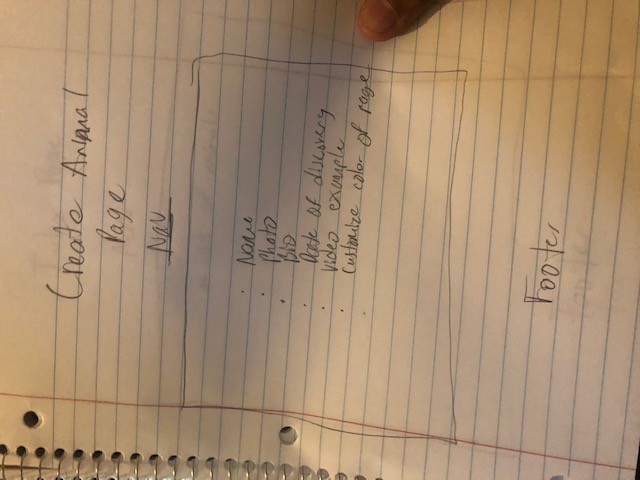 Create Animal
Page
Nav
· Name
· Photo
· Bio
· Date of discovery
· Video example
· Customize color of page
·
Footer